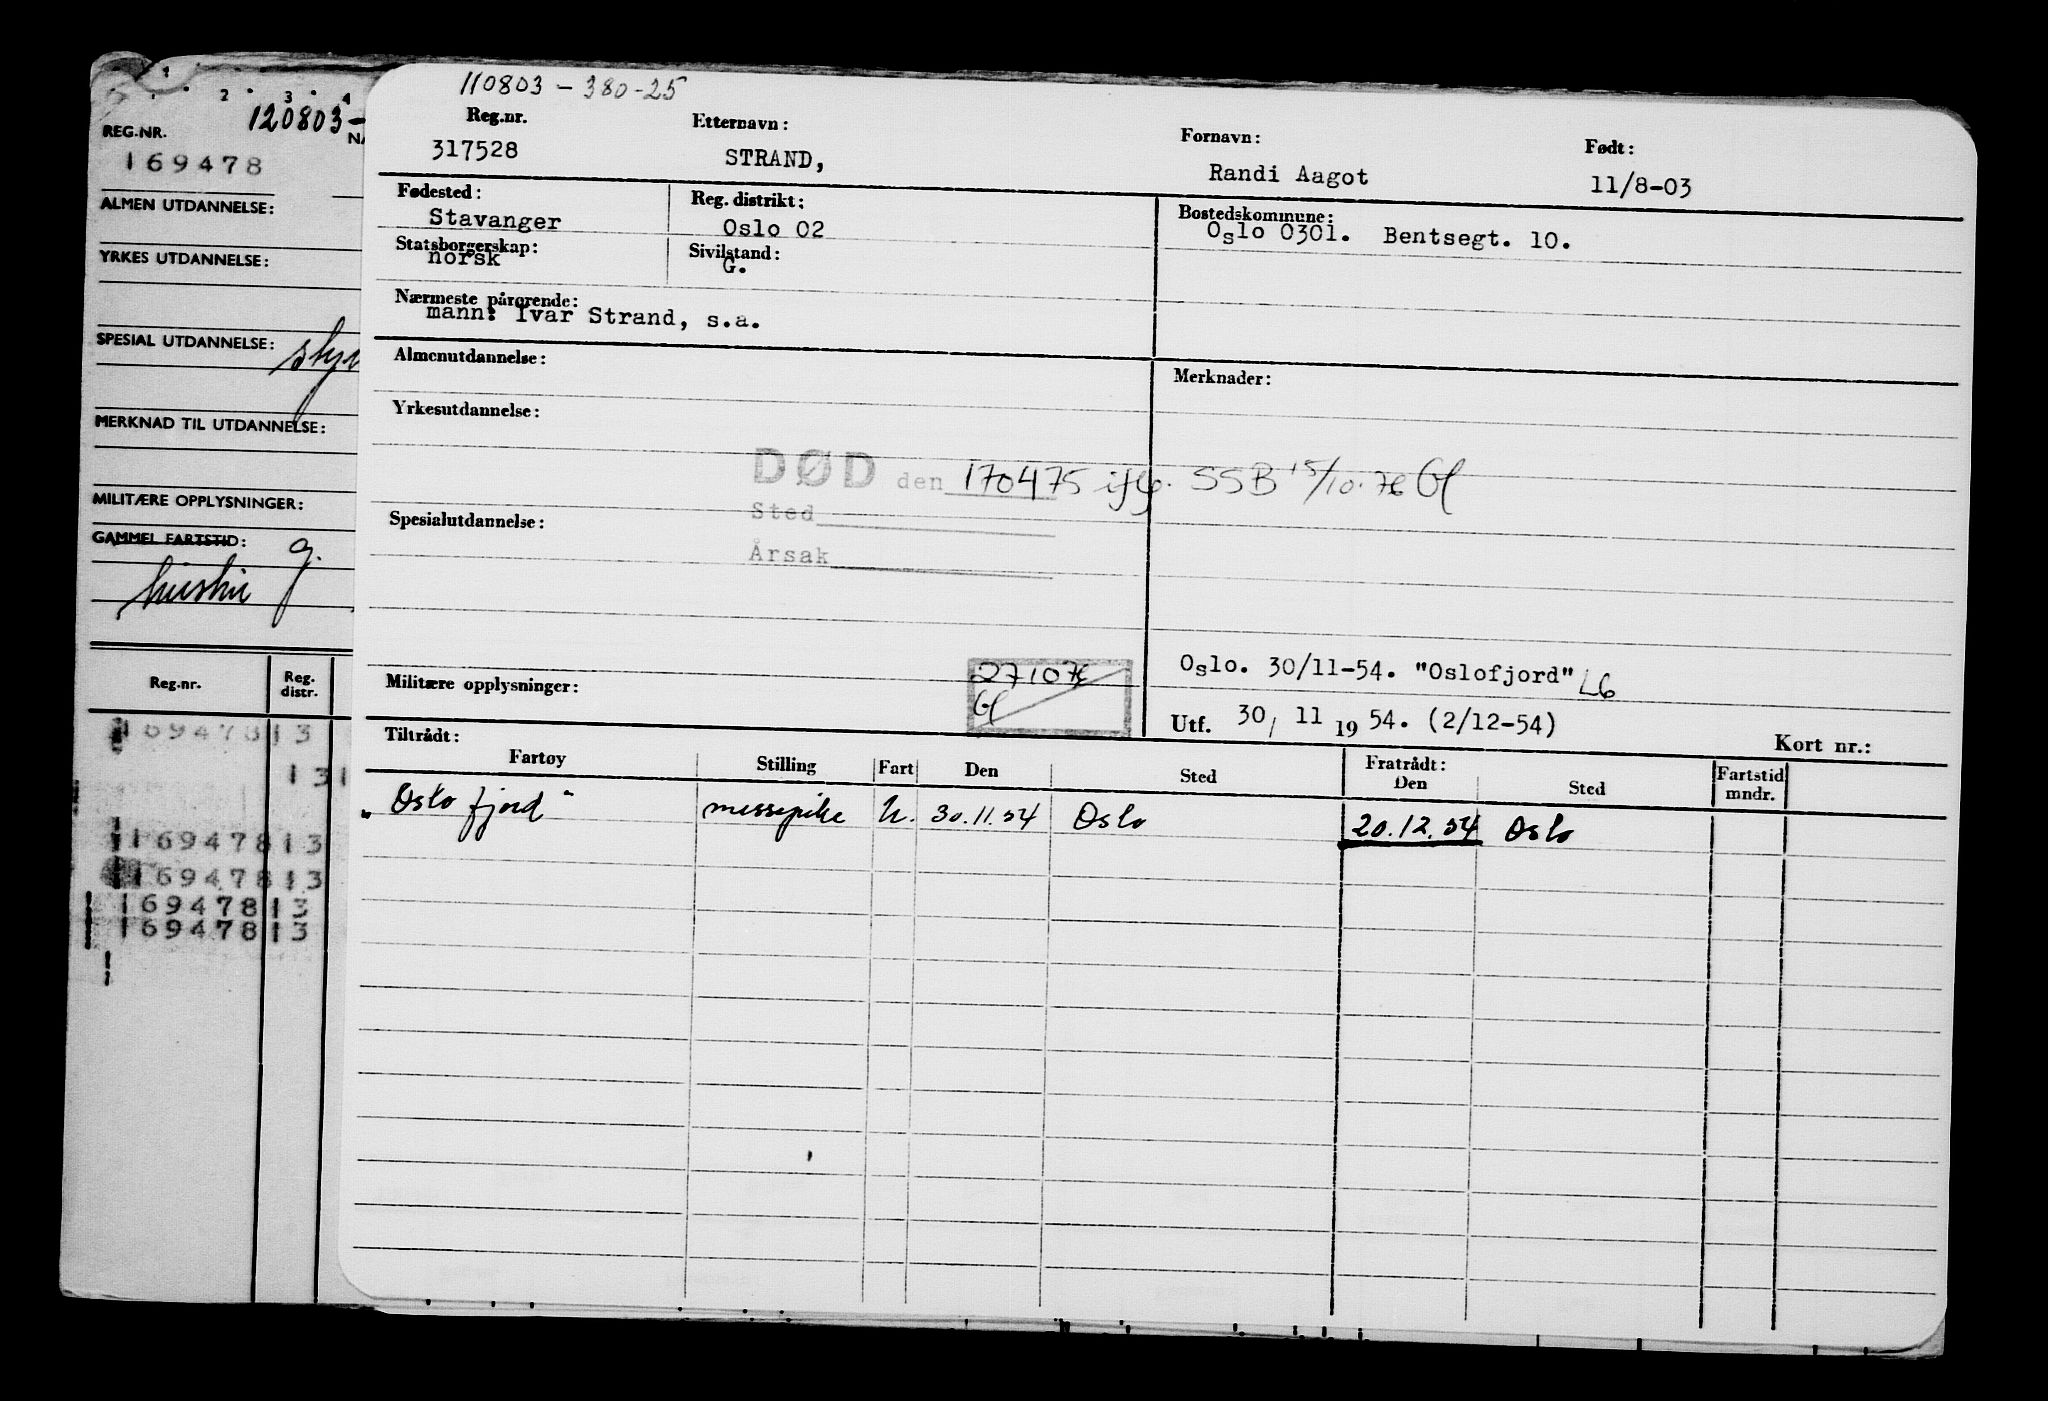 110803-380-25
Reg.nr.
317528
Etternavn:
STRAND,
Fornavn:
Randi Aagot
Født:
11/8-03
Fødested:
Stavanger
Reg. distrikt:
Oslo 02
Bostedskommune:
Oslo 0301. Bentsegt. 10.
Statsborgerskap:
norsk
Sivilstand:
G.
Nærmeste pårørende:
mann: Ivar Strand, s.a.
Almenutdannelse:
Merknader:
Yrkesutdannelse:
DØD den 170475 iflg. SSB 15/10.76 Gl
Sted
Årsak
Spesialutdannelse:
Militære opplysninger:
271076
Gl
Oslo. 30/11-54. "Oslofjord" LG
Utf. 30, 11 1954. (2/12-54)
Kort nr.:
Tiltrådt:
Fartøy Stilling Fart Den Sted
Fratrådt:
Den Sted
Fartstid
mndr.
"Oslofjord" messepike U. 30.11.54 Oslo 20.12.54 Oslo
1 2 3 4
120803-
REG.NR.
NA
169478
ALMEN UTDANNELSE:
YRKES UTDANNELSE:
SPESIAL UTDANNELSE:
styr
MERKNAD TIL UTDANNELSE:
MILITÆRE OPPLYSNINGER:
GAMMEL FARTSTID:
g.
Reg.nr.
Reg.
distr.
169478 13
131
169478 13
169478 13
169478 13
169478 13